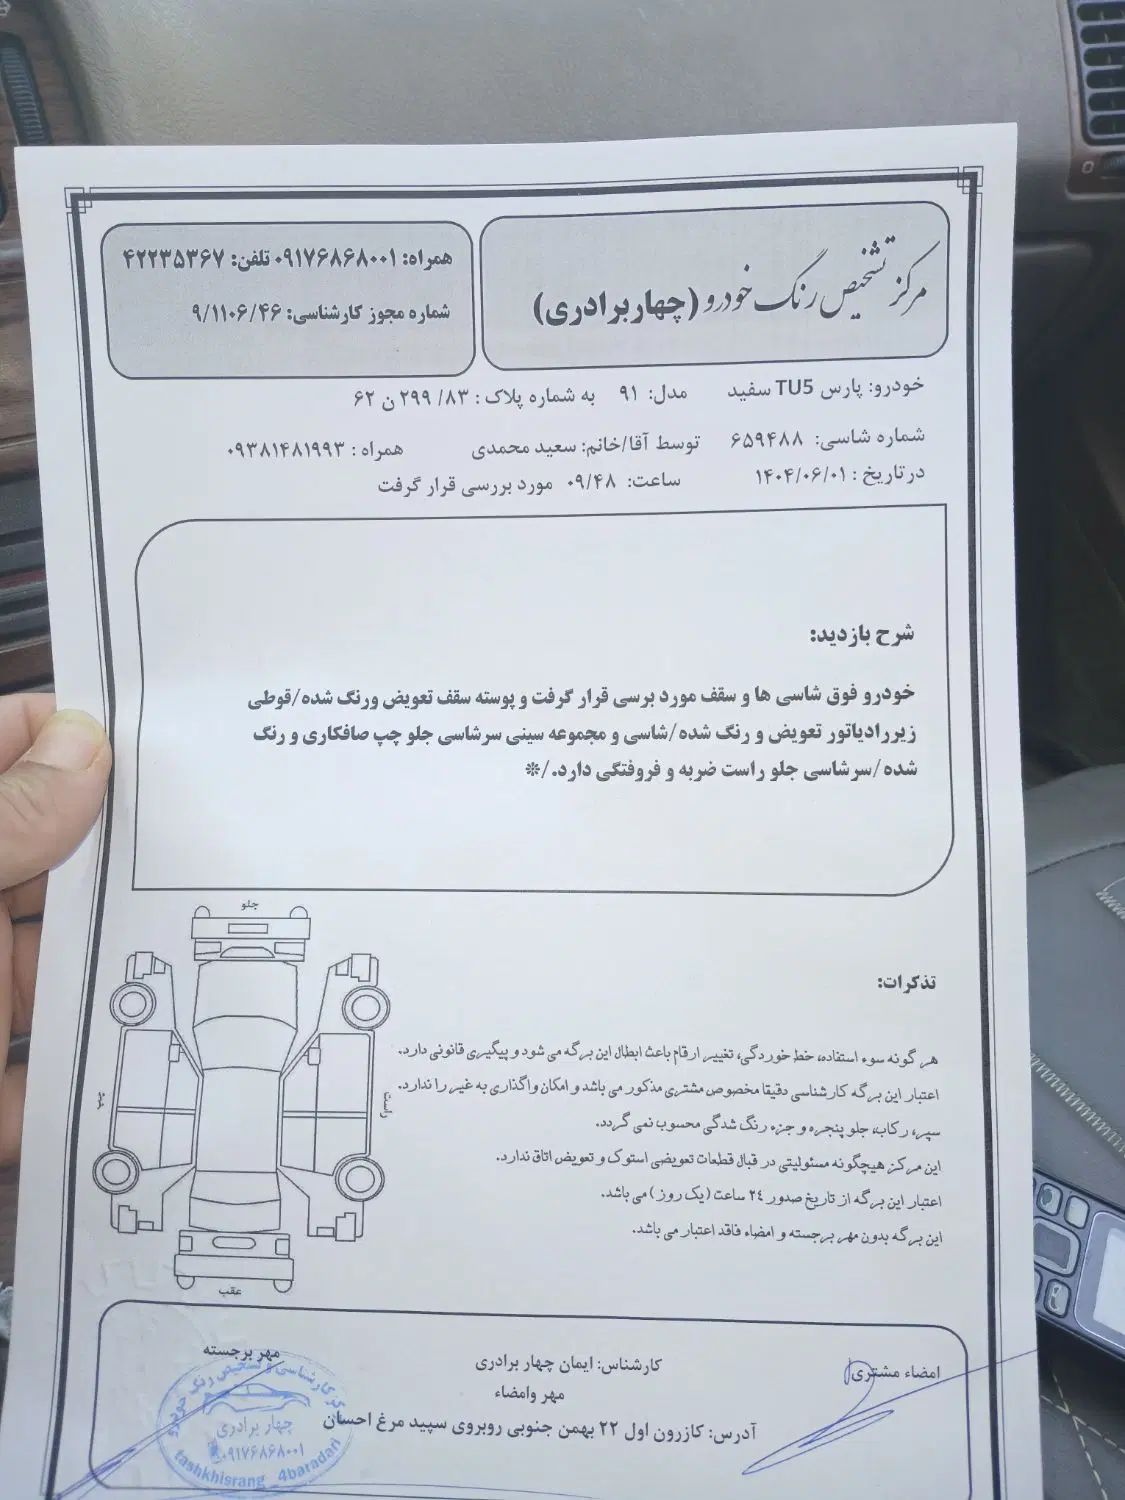 مرکز تشخیص رنگ خودرو (چهاربرادری)
همراه: ۰۹۱۷۶۸۶۸۰۰۱ تلفن: ۴۲۲۳۵۳۶۷
شماره مجوز کارشناسی: ۹/۱۱۰۶/۴۶
خودرو: پارس TU5 سفید مدل: ۹۱ به شماره پلاک : ۸۳/ ۲۹۹ ن ۶۲
شماره شاسی: ۶۵۹۴۸۸ توسط آقا/خانم: سعید محمدی همراه : ۰۹۳۸۱۴۸۱۹۹۳
در تاریخ : ۱۴۰۴/۰۶/۰۱ ساعت: ۰۹/۴۸ مورد بررسی قرار گرفت
شرح بازدید:
خودرو فوق شاسی ها و سقف مورد برسی قرار گرفت و پوسته سقف تعویض ورنگ شده/قوطی
زیررادیاتور تعویض و رنگ شده/شاسی و مجموعه سینی سرشاسی جلو چپ صافکاری و رنگ
شده/سرشاسی جلو راست ضربه و فروفتگی دارد./*
جلو
راست
عقب
تذکرات:
هر گونه سوء استفاده، خط خوردگی، تغییر ارقام باعث ابطال این برگه می شود و پیگیری قانونی دارد.
اعتبار این برگه کارشناسی دقیقا مخصوص مشتری مذکور می باشد و امکان واگذاری به غیر را ندارد.
سپر، رکاب، جلو پنجره و جزء رنگ شدگی محسوب نمی گردد.
این مرکز هیچگونه مسئولیتی در قبال قطعات تعویضی استوک و تعویض اتاق ندارد.
اعتبار این برگه از تاریخ صدور ۲۴ ساعت (یک روز) می باشد.
این برگه بدون مهر برجسته و امضاء فاقد اعتبار می باشد.
امضاء مشتری
کارشناس: ایمان چهار برادری
مهر وامضاء
مهر برجسته
آدرس: کازرون اول ۲۲ بهمن جنوبی روبروی سپید مرغ احسان
چهار برادری
۰۹۱۷۶۸۶۸۰۰۱
tashkhisrang_4baradari